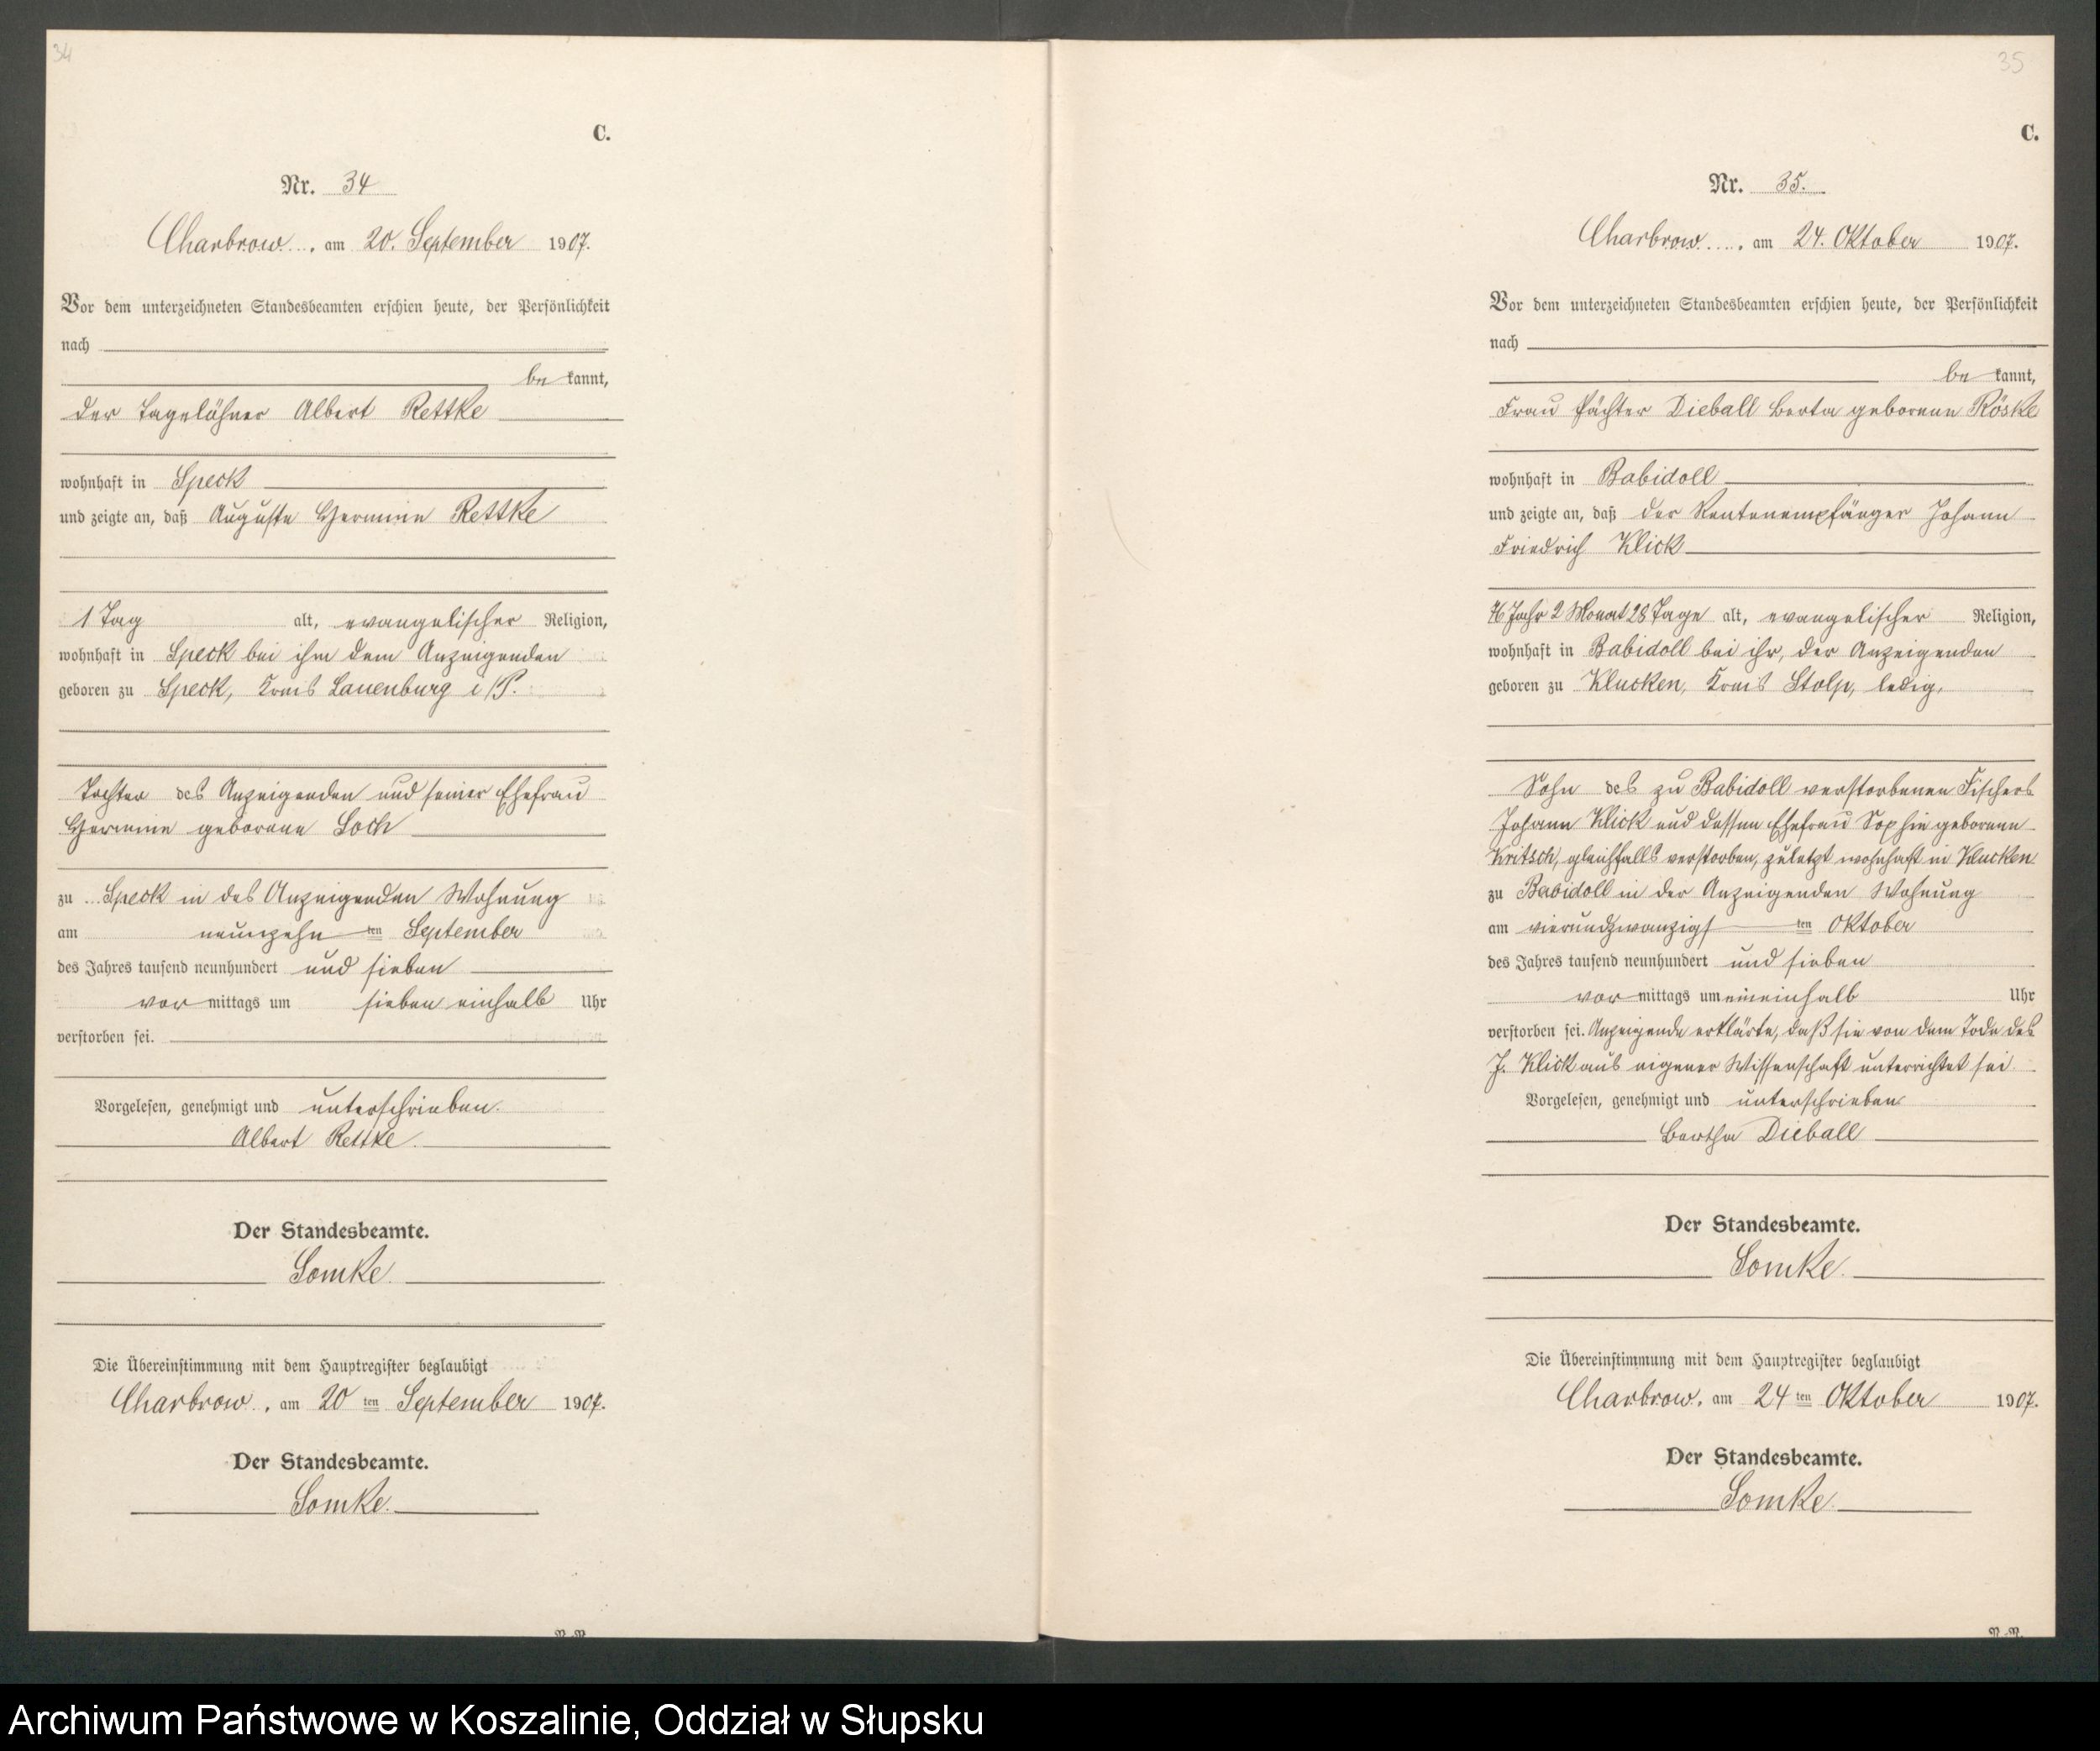 34
C.
Nr. 34
Charbrow, am 20. September 1907.
Vor dem unterzeichneten Standesbeamten erschien heute, der Persönlichkeit
nach
be kannt,
der Tagelöhner Albert Rettke
wohnhaft in Speck
und zeigte an, daß Auguste Hermine Rettke
1 Tag alt, evangelischer Religion,
wohnhaft in Speck bei ihm dem Anzeigenden
geboren zu Speck, Kreis Lauenburg i/P.
Tochter des Anzeigenden und seiner Ehefrau
Hermine geborene Loch
zu Speck in des Anzeigenden Wohnung
am neunzehn ten September
des Jahres tausend neunhundert und sieben
vor mittags um sieben einhalb Uhr
verstorben sei.
Vorgelesen, genehmigt und unterschrieben.
Albert Rettke.
Der Standesbeamte.
Somke.
Die Übereinstimmung mit dem Hauptregister beglaubigt
Charbrow, am 20 ten September 1907.
Der Standesbeamte.
Somke.
35
C.
Nr. 35.
Charbrow, am 24. Oktober 1907.
Vor dem unterzeichneten Standesbeamten erschien heute, der Persönlichkeit
nach
be kannt,
Frau Pächter Dieball Berta geborene Röske
wohnhaft in Babidoll
und zeigte an, daß der Rentenempfänger Johann
Friedrich Klick
76 Jahr 2 Monat 28 Tage alt, evangelischer Religion,
wohnhaft in Babidoll bei ihr, der Anzeigenden
geboren zu Klucken, Kreis Stolp, ledig,
Sohn des zu Babidoll verstorbenen Fischers
Johann Klick und dessen Ehefrau Sophie geborene
Kritsch, gleichfalls verstorben, zuletzt wohnhaft in Klucken
zu Babidoll in der Anzeigenden Wohnung
am vierundzwanzigs ten Oktober
des Jahres tausend neunhundert und sieben
vor mittags um eineinhalb Uhr
verstorben sei. Anzeigende erklärte, daß sie von dem Tode des
J. Klick aus eigener Wissenschaft unterrichtet sei.
Vorgelesen, genehmigt und unterschrieben
Bertha Dieball
Der Standesbeamte.
Somke.
Die Übereinstimmung mit dem Hauptregister beglaubigt
Charbrow, am 24 ten Oktober 1907.
Der Standesbeamte.
Somke.
Archiwum Państwowe w Koszalinie, Oddział w Słupsku